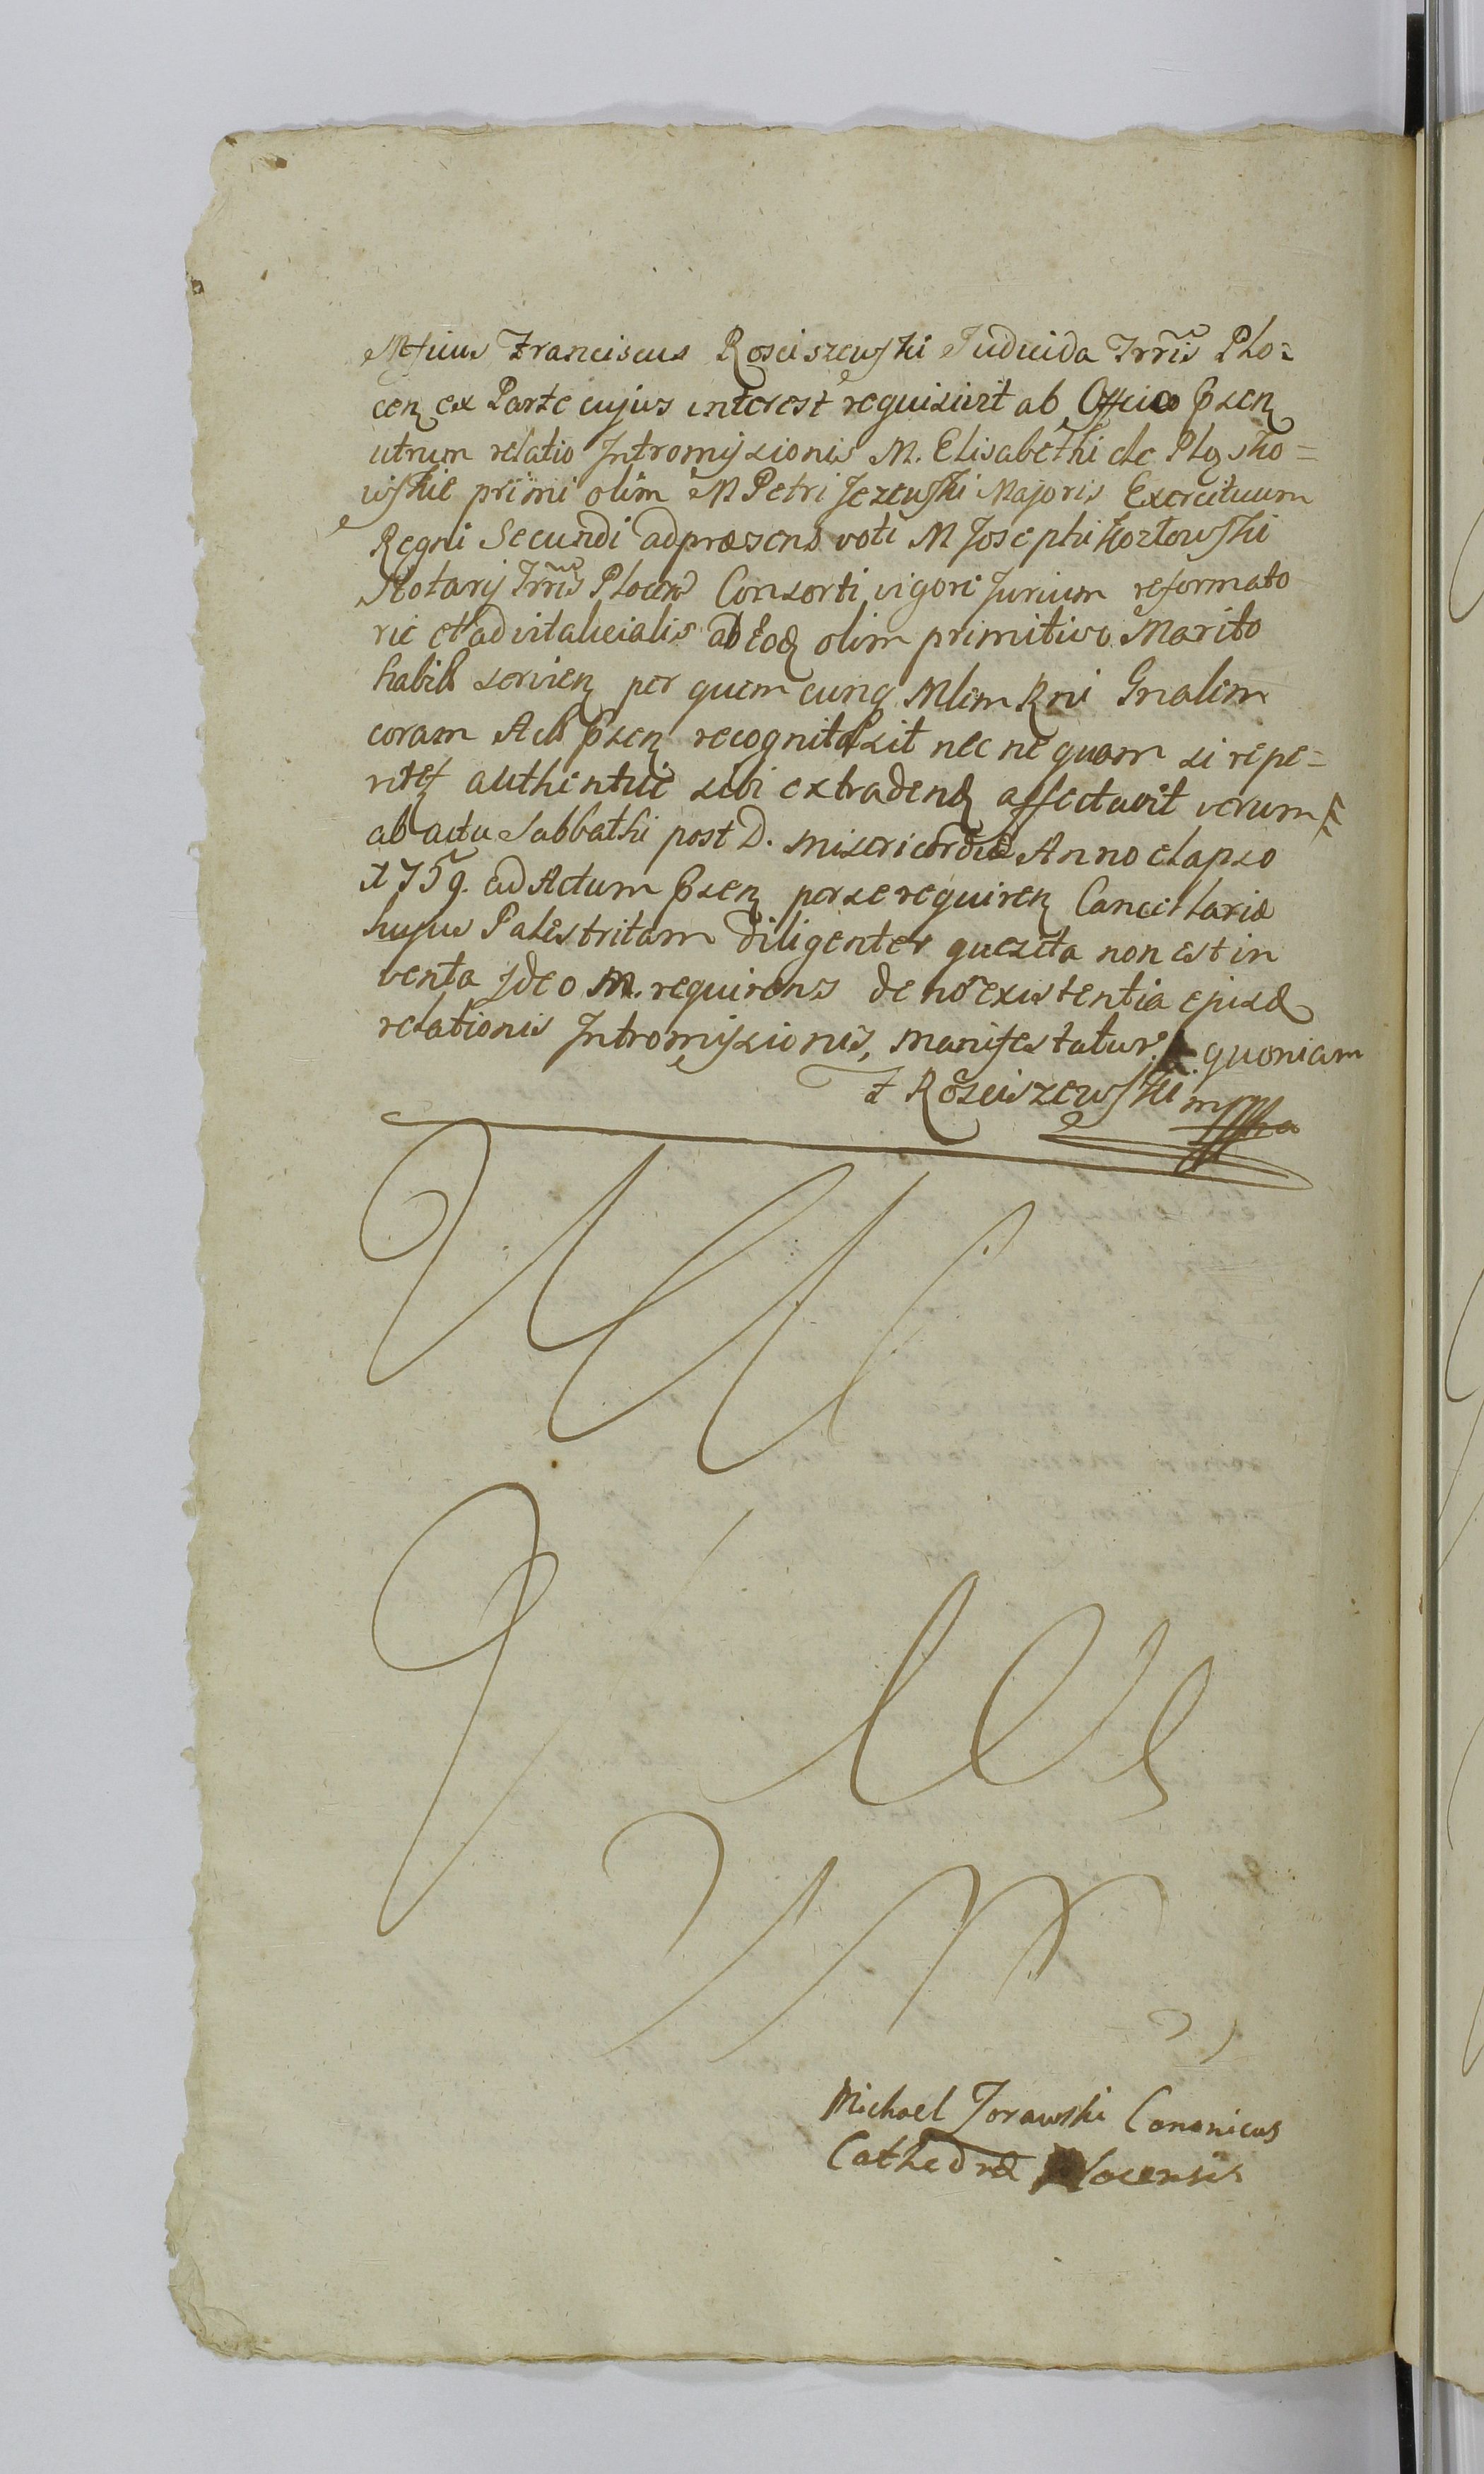 Mgficus Franciscus Rosciszewski Judicida Trris Plo=
cen ex Parte cujus interest requisivit ab Officio Psen
utrum relatio Intromissionis M. Elisabethi de Pląsko=
wskie primi olim M Petri Jezewski Majoris Exercituum
Regni Secundi ad præsens voti M Josephi Kozłowski
Notarij Trris Plocen Consorti vigore Jurium reformato
rie et advitalicialis ab Eod olim primitivo Marito
habit servien per quem cunq Mlem Rni Gnalem
coram Act Psen recognita sit nec ne quam si repe=
riret authentice sibi extradend affectavit verum
ab actu Sabbathi post D. Misericordiæ Anno elapso
1759. ad Actum Psen per se requiren Cancellariæ
hujus Palestritam diligenter quesita non est in
venta Ideo M. requirens de no existentia ejusd
relationis Intromissionis, manifestatur. quoniam
F Rosciszewski mppa
Michael Zorawski Canonicus
Cathedræ Plocensis